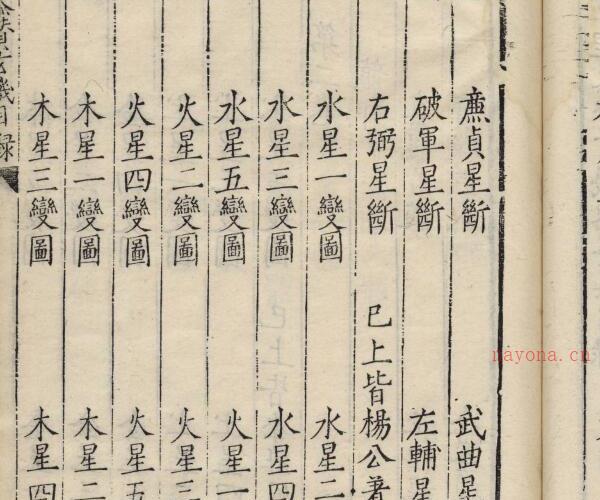 廉貞星斷 武曲星
破軍星斷 左輔星
右弼星斷 已上皆楊公著
水星一變圖 水星二
水星三變圖 水星四
水星五變圖 火星一
火星二變圖 火星三
火星四變圖 火星五
木星一變圖 木星二
木星三變圖 木星四
機目錄
nayona.cn